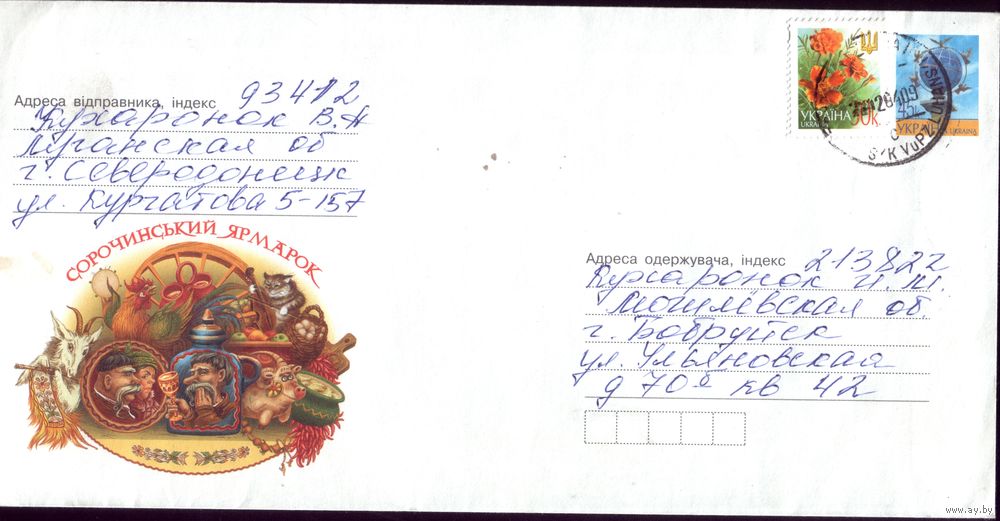 Адреса відправника, індекс 93412
Кухаронок В.А
Луганская об
г. Северодонецк
ул. Курчатова 5-157
СОРОЧИНСЬКИЙ ЯРМАРОК
УКРАЇНА
UKRAINA
УКРАЇНА UKRAINA
Адреса одержувача, індекс 213822
Кухаронок
Могилёвская об.
г. Бобруйск
ул. Ульяновская
д 70 кв 42
www.ay.by